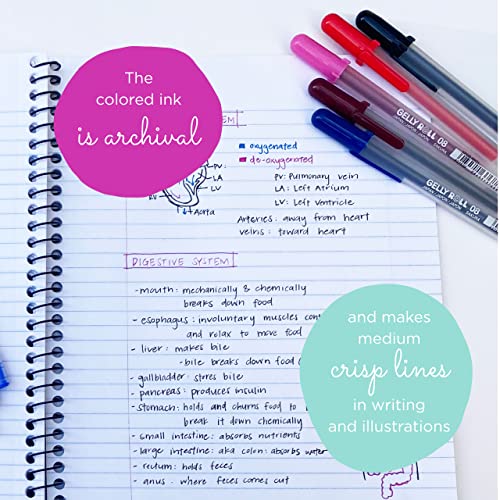 The
colored ink
is archival
EM
oxygenated
de-oxygenated
PV:
LA
LV
Aorta
PV: Pulmonary vein
LA: Left Atrium
LV: Left Ventricle
Arteries: away from heart
veins: toward heart
DIGESTIVE SYSTEM
-mouth: mechanically & chemically
breaks down food
-esophagus: involuntary muscles con
and relax to move food
-liver: makes bile
-bile breaks down food (
-gallbladder: stores bile
-pancreas: produces insulin
-stomach: holds and churns food to
break it down chemically
-small intestine: absorbs nutrients
-large intestine: aka colon: absorbs water
-rectum: holds feces
-anus: where feces comes out
and makes
medium
crisp lines
in writing
and illustrations
GELLY ROLL 08
GELLY ROLL 08